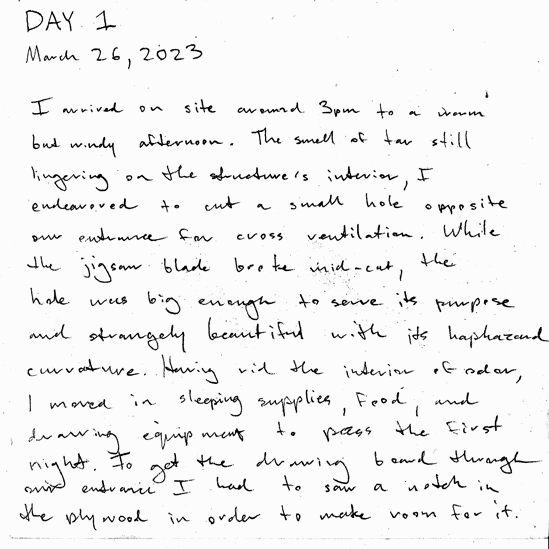 DAY 1
March 26, 2023
I arrived on site around 3pm to a warm
but windy afternoon. The smell of tar still
lingering on the structure's interior, I
endeavored to cut a small hole opposite
our entrance for cross ventilation. While
the jigsaw blade broke mid-cut, the
hole was big enough to serve its purpose
and strangely beautiful with its haphazard
curvature. Having rid the interior of odor,
I moved in sleeping supplies, food, and
drawing equipment to pass the first
night. To get the drawing board through
our entrance I had to saw a notch in
the plywood in order to make room for it.